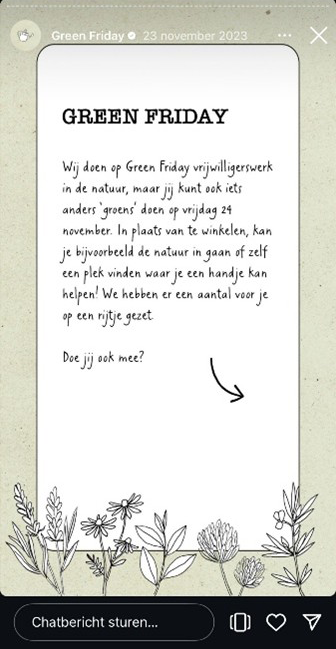 Green Friday 23 november 2023
GREEN FRIDAY
Wij doen op Green Friday vrijwilligerswerk
in de natuur, maar jij kunt ook iets
anders 'groens' doen op vrijdag 24
november. In plaats van te winkelen, kan
je bijvoorbeeld de natuur in gaan of zelf
een plek vinden waar je een handje kan
helpen! We hebben er een aantal voor je
op een rijtje gezet.
Doe jij ook mee?
Chatbericht sturen...